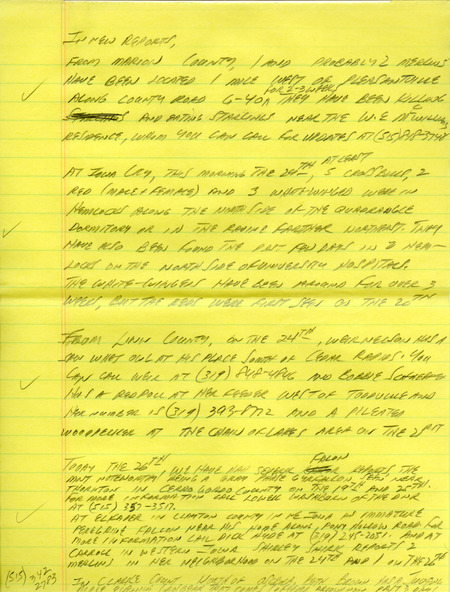 IN NEW REPORTS,
FROM MARION COUNTY, 1 AND PROBABLY 2 MERLINS
HAVE BEEN LOCATED 1 MILE WEST OF PLEASANTVILLE
FOR 2-3 WEEKS
ALONG COUNTY ROAD G-40. THEY HAVE BEEN KILLING
AND EATING STARLINGS NEAR THE W.E.
RESIDENCE, WHOM YOU CAN CALL FOR UPDATES AT (515)
AT IOWA CITY, THIS MORNING THE 24TH, AT LEAST 5 CROSSBILLS, 2
RED (MALE + FEMALE) AND 3 WHITE-WINGED WERE IN
HEMLOCKS ALONG THE NORTH SIDE OF THE QUADRANGLE
DORMITORY OR IN THE RAVINE FARTHER NORTHEAST. THEY
HAVE ALSO BEEN FOUND THE PAST FEW DAYS IN 2 HEM-
LOCKS ON THE NORTH SIDE OF UNIVERSITY HOSPITALS.
THE WHITE-WINGEDS HAVE BEEN AROUND FOR OVER 3
WEEKS, BUT THE REDS WERE FIRST SEEN ON THE 20TH
FROM LINN COUNTY, ON THE 24TH, WEIR NELSON HAS A
SAW WHET OWL AT HIS PLACE SOUTH OF CEDAR RAPIDS. YOU
CAN CALL WEIR AT (319) AND
HAS A REDPOLL AT HER FEEDER WEST OF TODDVILLE AND
HER NUMBER IS (319) 393-8772 AND A PILEATED
WOODPECKER AT THE CHAIN OF LAKES AREA ON THE 21ST
TODAY THE 26TH, WE HAVE HAD SEVERAL FALCON REPORTS, THE
MOST NOTEWORTHY BEING A GRAY PHASE GYRFALCON SEEN NEAR
THORNTON IN CERRO GORDO COUNTY ON THE 19TH AND 25TH.
FOR MORE INFORMATION CALL LOWELL WASHBURN OF THE DNR
AT (515) 357-3517.
AT ELKADER IN CLAYTON COUNTY IN NE IOWA AN IMMATURE
PEREGRINE FALCON NEAR HIS HOME ALONG PONY HOLLOW ROAD FOR
MORE INFORMATION CALL DICK HYDE AT (319) 245-2051. AND AT
CARROLL IN WESTERN IOWA SHIRLEY SHIRK REPORTS 2
MERLINS IN HER NEIGHBORHOOD ON THE 24TH AND 1 ON THE 26TH
(515) 342
2783
IN CLARKE COUNTY, NORTH OF OSCEOLA, BETH BROWN HAS